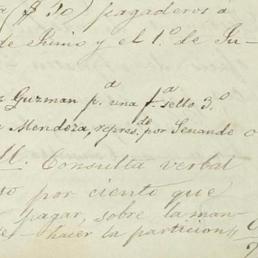 ($ 30) pagaderos a
de Junio y el 1.º de Ju-
Guzman p.ª una f.ª sello 3.º
Mendoza, repres.do por Senande
M. Consulta verbal
so por ciento que
pagar, sobre la man-
hacer la particion,